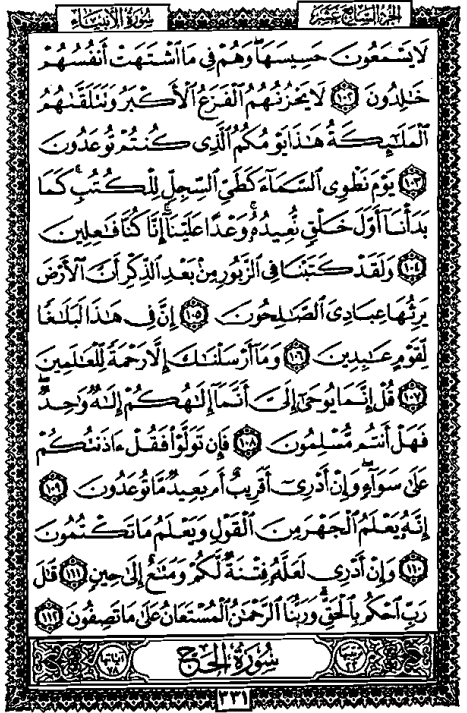 الجزء السابع عشر
سورة الأنبياء
لَا يَسْمَعُونَ حَسِيسَهَا ۖ وَهُمْ فِي مَا اشْتَهَتْ أَنفُسُهُمْ
خَٰلِدُونَ ١٠٢ لَا يَحْزُنُهُمُ الْفَزَعُ الْأَكْبَرُ وَتَتَلَقَّىٰهُمُ
الْمَلَٰٓئِكَةُ هَٰذَا يَوْمُكُمُ الَّذِي كُنتُمْ تُوعَدُونَ
١٠٣ يَوْمَ نَطْوِي السَّمَآءَ كَطَيِّ السِّجِلِّ لِلْكُتُبِ ۚ كَمَا
بَدَأْنَآ أَوَّلَ خَلْقٍ نُّعِيدُهُۥ ۚ وَعْدًا عَلَيْنَآ ۚ إِنَّا كُنَّا فَٰعِلِينَ
١٠٤ وَلَقَدْ كَتَبْنَا فِي الزَّبُورِ مِنۢ بَعْدِ الذِّكْرِ أَنَّ الْأَرْضَ
يَرِثُهَا عِبَادِيَ الصَّٰلِحُونَ ١٠٥ إِنَّ فِي هَٰذَا لَبَلَٰغًا
لِّقَوْمٍ عَٰبِدِينَ ١٠٦ وَمَآ أَرْسَلْنَٰكَ إِلَّا رَحْمَةً لِّلْعَٰلَمِينَ
١٠٧ قُلْ إِنَّمَا يُوحَىٰٓ إِلَيَّ أَنَّمَآ إِلَٰهُكُمْ إِلَٰهٌ وَٰحِدٌ ۖ
فَهَلْ أَنتُم مُّسْلِمُونَ ١٠٨ فَإِن تَوَلَّوْا فَقُلْ ءَاذَنتُكُمْ
عَلَىٰ سَوَآءٍ ۖ وَإِنْ أَدْرِيٓ أَقَرِيبٌ أَم بَعِيدٌ مَّا تُوعَدُونَ ١٠٩
إِنَّهُۥ يَعْلَمُ الْجَهْرَ مِنَ الْقَوْلِ وَيَعْلَمُ مَا تَكْتُمُونَ
١١٠ وَإِنْ أَدْرِي لَعَلَّهُۥ فِتْنَةٌ لَّكُمْ وَمَتَٰعٌ إِلَىٰ حِينٍ ١١١ قَٰلَ
رَبِّ احْكُم بِالْحَقِّ ۗ وَرَبُّنَا الرَّحْمَٰنُ الْمُسْتَعَانُ عَلَىٰ مَا تَصِفُونَ ١١٢
سورة الحج
آياتها ٧٨
٣٣١